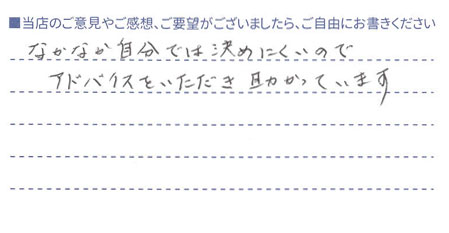 ■当店のご意見やご感想、ご要望がございましたら、ご自由にお書きください
なかなか自分では決めにくいので
アドバイスをいただき助かっています